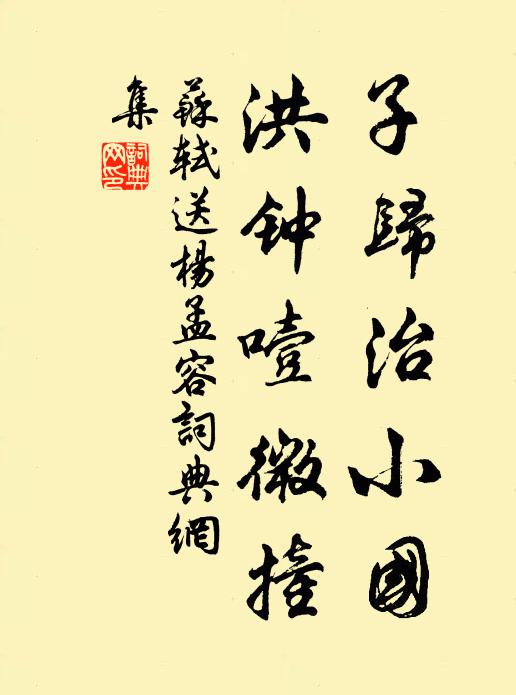 子歸治小國
洪钟噎微撞
蘇軾送楊孟容詞典網
集
詞典
网印